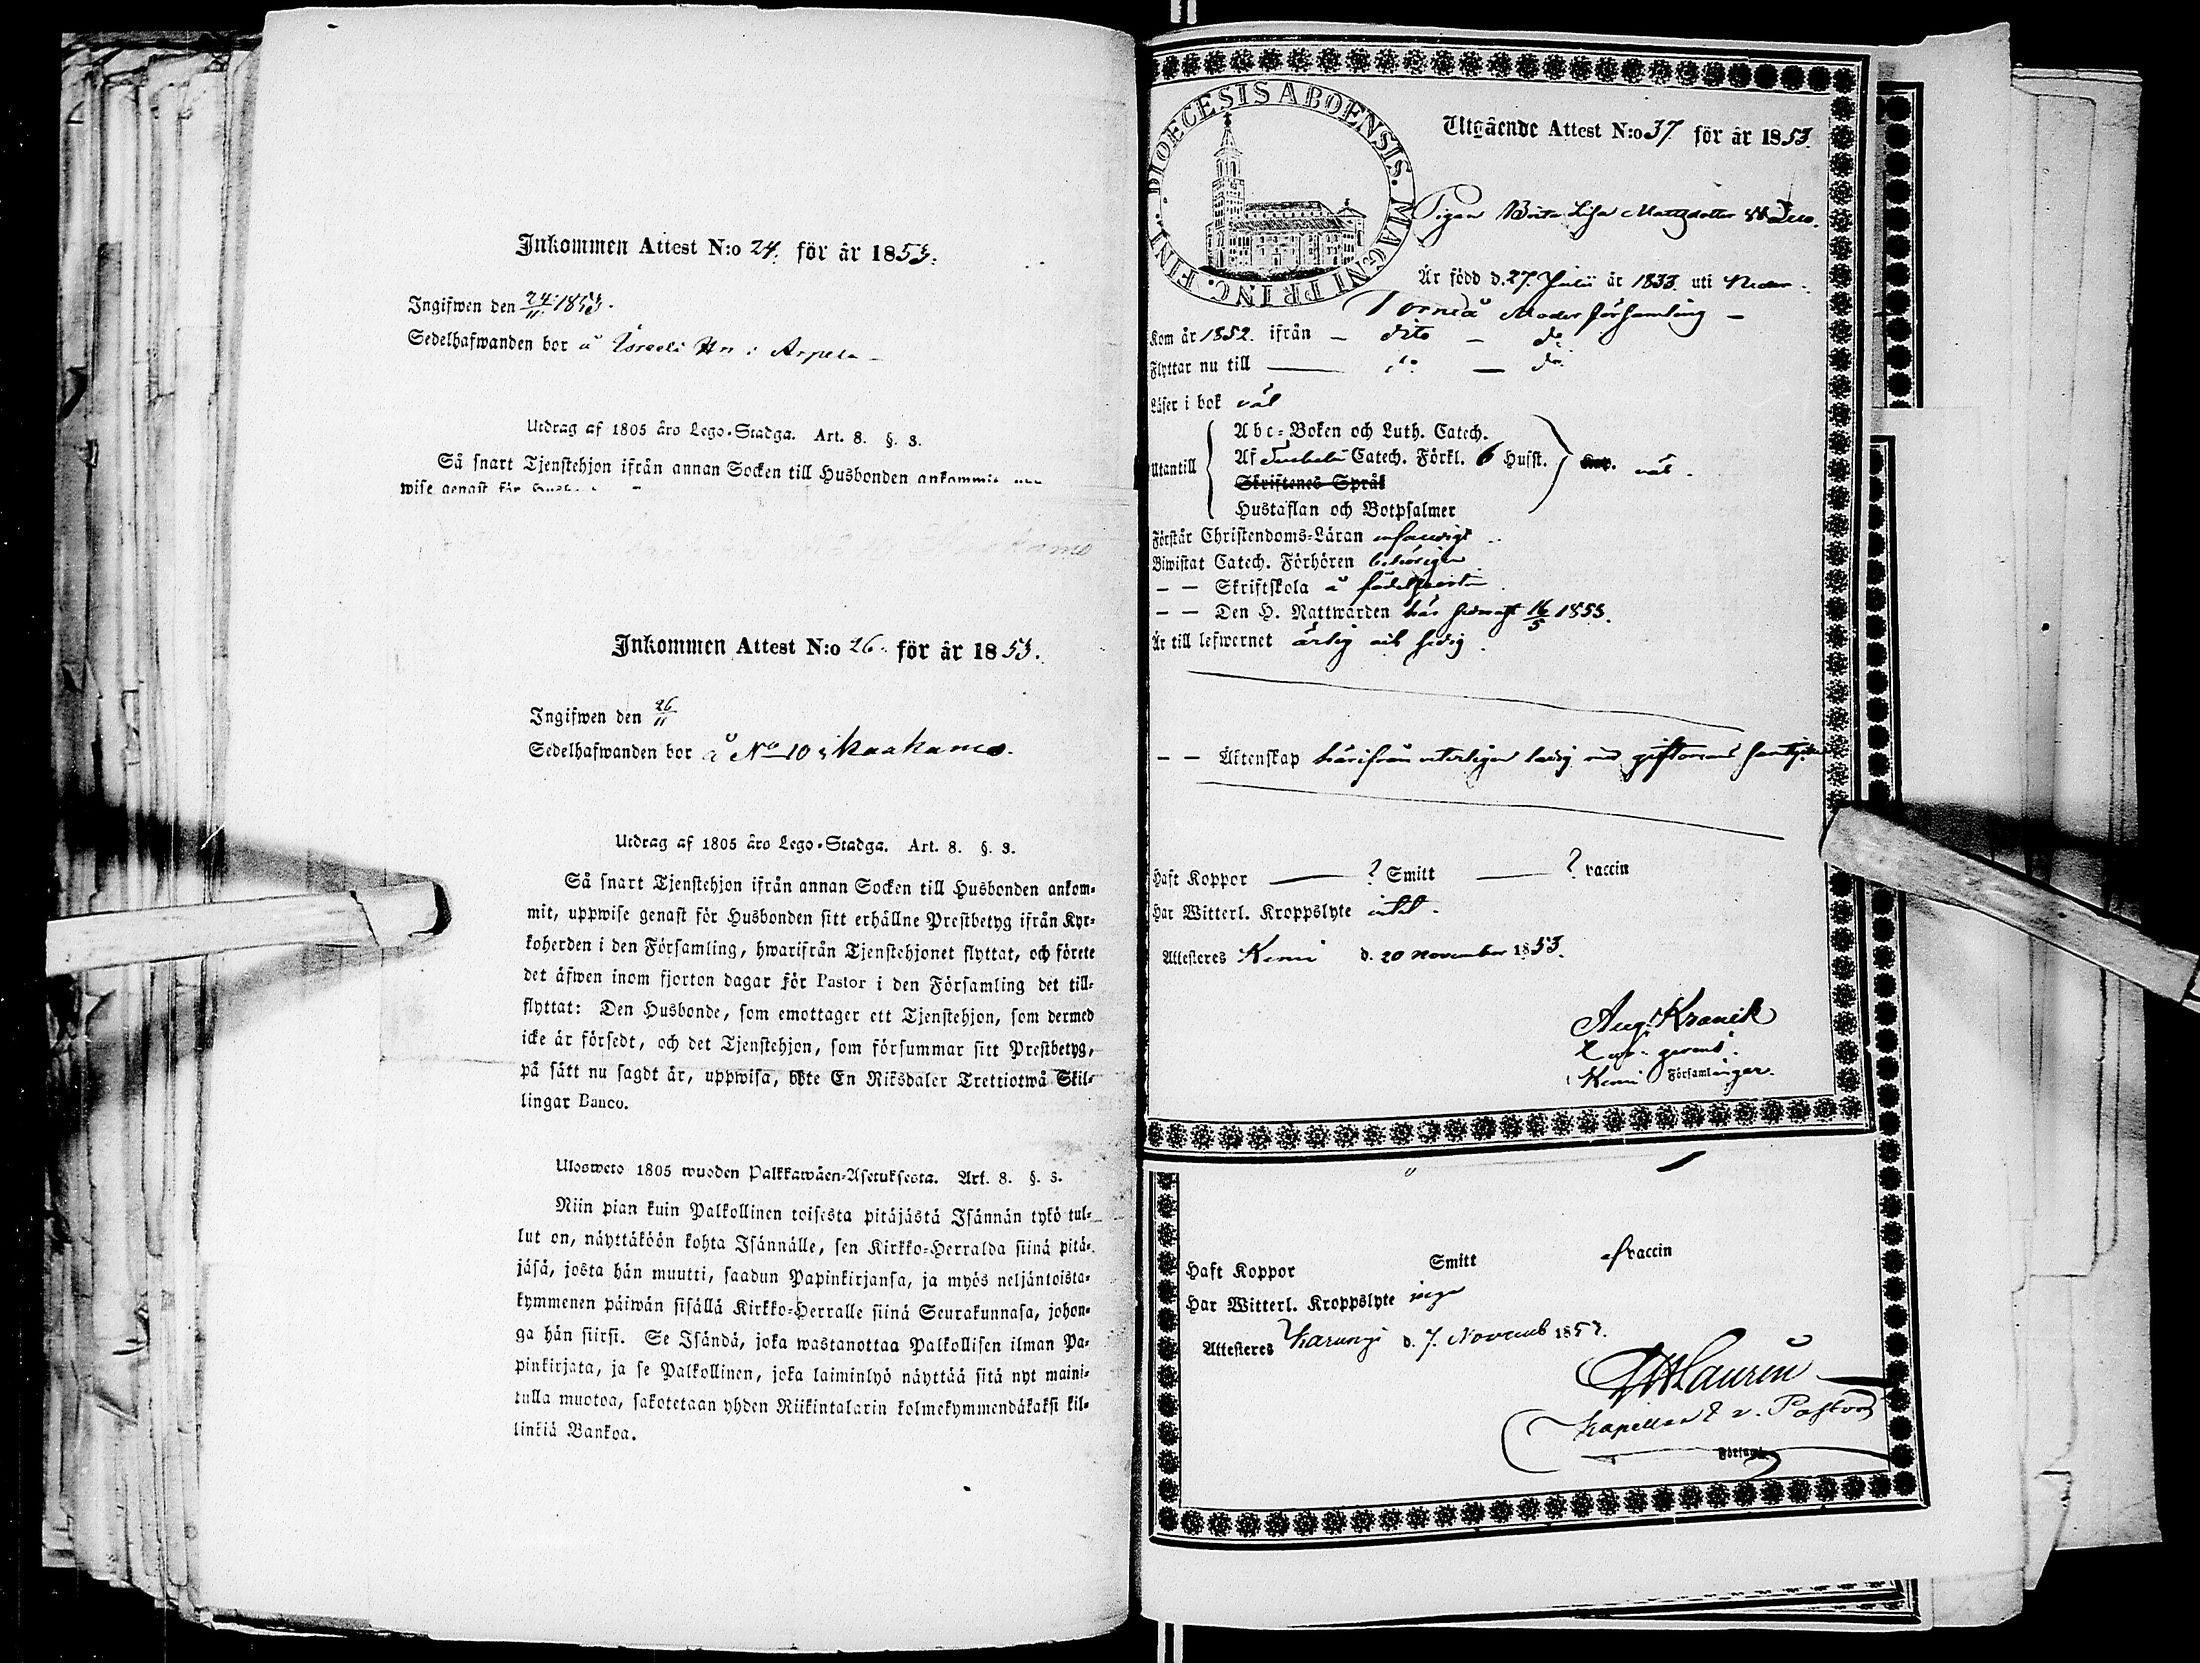 Inkommen Attest N:o 24. för år 1853.
Ingifwen den 24/11 1853.
Sedelhafwanden bor å Israels Hn i Arpela
Utdrag af 1805 års Lego-Stadga. Art. 8. §. 3.
Så snart Tjenstehjon ifrån annan Socken till Husbonden ankommit
wise genast för
Inkommen Attest N:o 26. för år 1853.
Ingifwen den 26/11
Sedelhafwanden bor å No 10 i Kaakamo.
Utdrag af 1805 års Lego-Stadga. Art. 8. §. 3.
Så snart Tjenstehjon ifrån annan Socken till Husbonden ankom-
mit, uppwise genast för Husbonden sitt erhållne Prestbetyg ifrån Kyr-
koherden i den Församling, hwarifrån Tjenstehjonet flyttat, och förete
det äfwen inom fjorton dagar för Pastor i den Församling det till-
flyttat: Den Husbonde, som emottager ett Tjenstehjon, som dermed
icke är försedt, och det Tjenstehjon, som försummar sitt Prestbetyg,
på sätt nu sagdt är, uppwisa, böte En Riksdaler Trettiotwå Skil-
lingar Banco.
Ulosweto 1805 wuoden Palkkawäen-Asetuksesta. Art. 8. §. 3.
Niin pian kuin Palkollinen toisesta pitäjästä Isännän tykö tul-
lut on, näyttäköön kohta Isännälle, sen Kirkko-Herralda siinä pitä-
jäsä, josta hän muutti, saadun Papinkirjansa, ja myös neljäntoista-
kymmenen päiwän sisällä Kirkko-Herralle siinä Seurakunnasa, johon-
ga hän siirsi. Se Isändä, joka wastanottaa Palkollisen ilman Pa-
pinkirjata, ja se Palkollinen, joka laiminlyö näyttää sitä nyt maini-
tulla muotoa, sakotetaan yhden Riikintalarin kolmekymmendäkaksi kil-
linkiä Bankoa.
DIOECESIS ABOENSIS. MAGNI PRINC. FINL.
Utgående Attest N:o 37 för år 1853.
Pigan Brita Lisa Mattsdotter
Är född d. 27. Julii år 1833. uti Neder-
Torneå Moder församling
Kom år 1852. ifrån – dito – do
Flyttar nu till do – do
Läser i bok väl
Utantill
Abc-Boken och Luth. Catech.
Af Svebelii Catech. Förkl. 6 Hufst. väl.
Skriftenes Språk
Hustaflan och Botpsalmer
Förstår Christendoms-Läran enfaldigt
Biwistat Catech. Förhören behörigen
– – Skriftskola å födelseorten
– – Den H. Nattwarden här senast 16/5 1853.
Är till lefwernet ärlig och sedig.
– – Äktenskap härifrån veterligen ledig med giftomans samtycke
Haft Koppor ? Smitt ? vaccin
Har Witterl. Kroppslyte intet.
Attesteras Kemi d. 20 november 1853.
Aug. Kranck
Kemi Församlingar.
Haft Koppor Smitt vaccin
Har Witterl. Kroppslyte inga
Attesteres Karungi d. 7. Novemb 1853.
Laurin
Kapellan & v. Pastor
Församl.